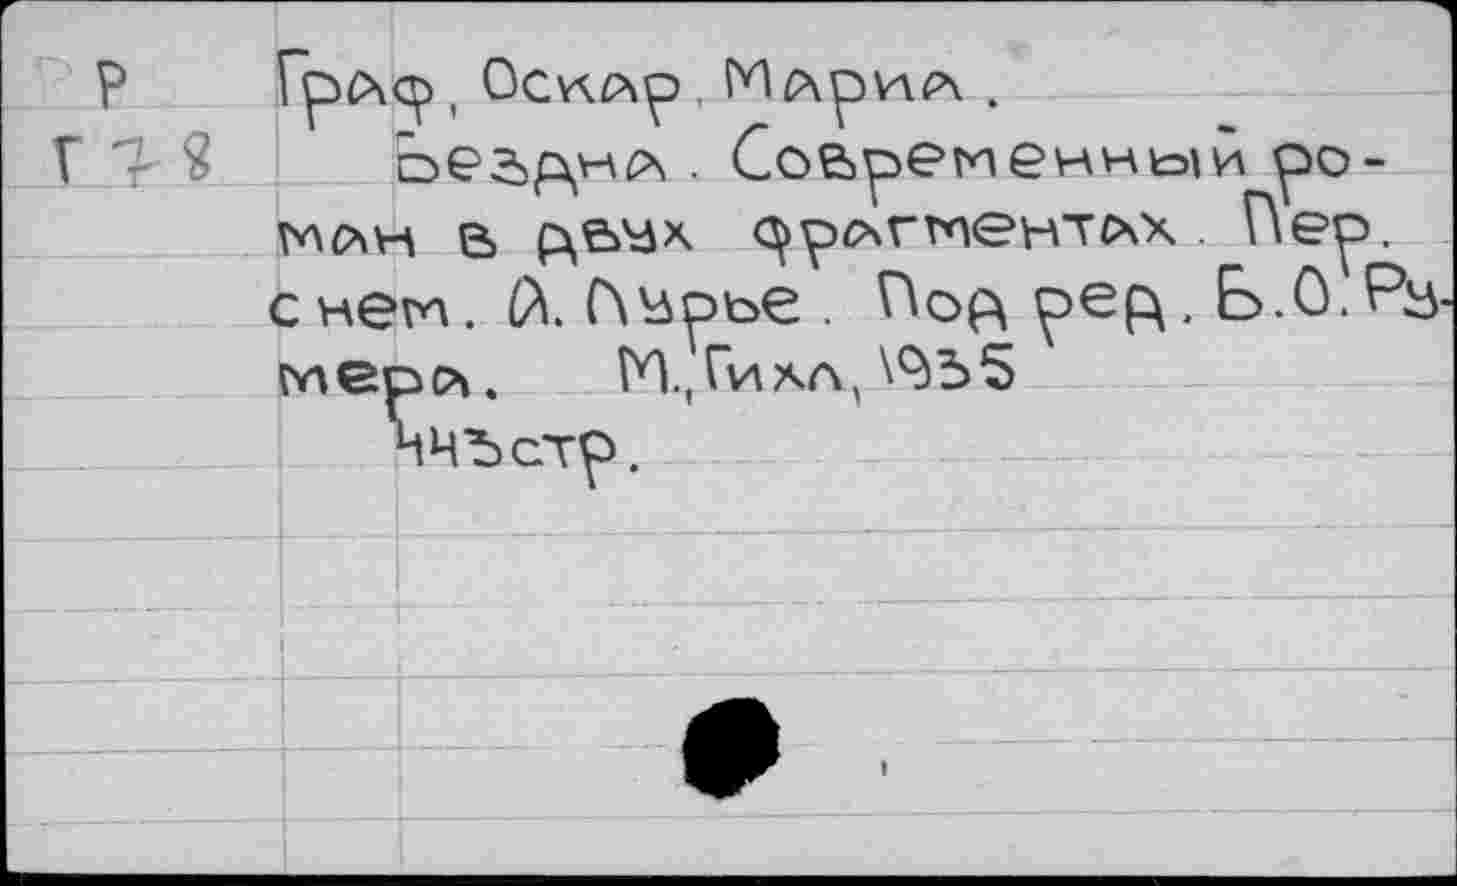 Р Граф, Оскар. Мария.
Г 78 Бездна. Современный ро-
ман в двух фрагментах. Пер.
с нем. А. Гурье. Под ред. Б.О. Ру-
мера. М., Гихл, 1935
443 стр.